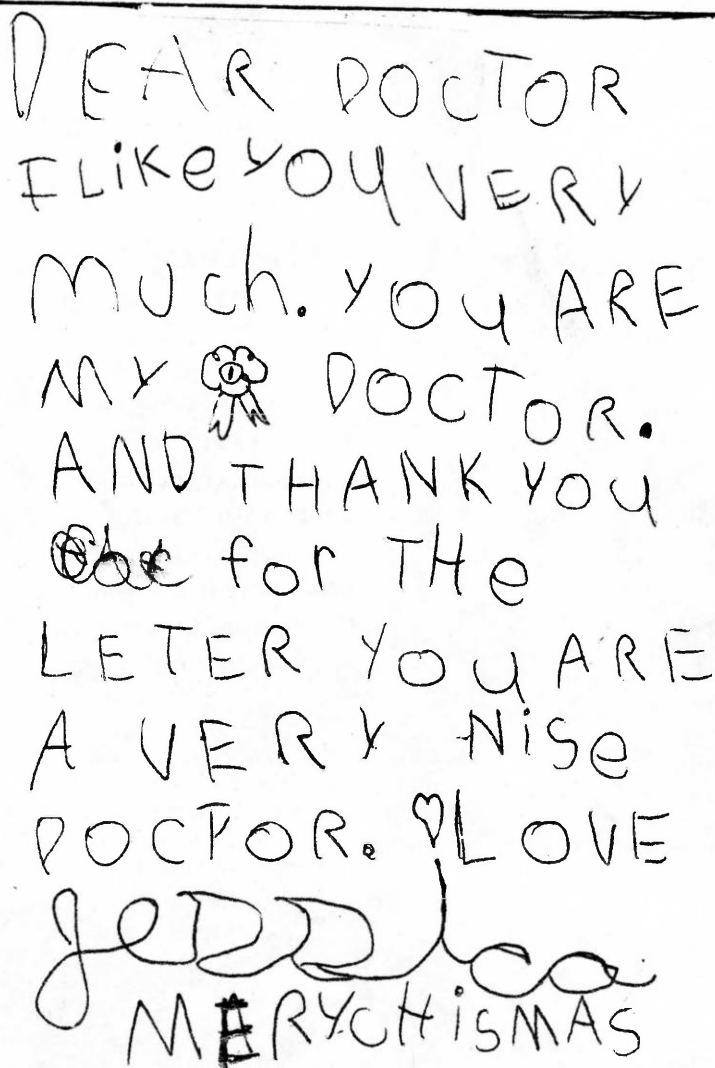 DEAR DOCTOR
I LiKe YOU VERY
much. YOU ARE
MY 1 DOCTOR.
AND THANK YOU
for THe
LETER YOU ARE
A VERY NiSe
DOCTOR. LOVE
Jessica
MERYCHiSMAS